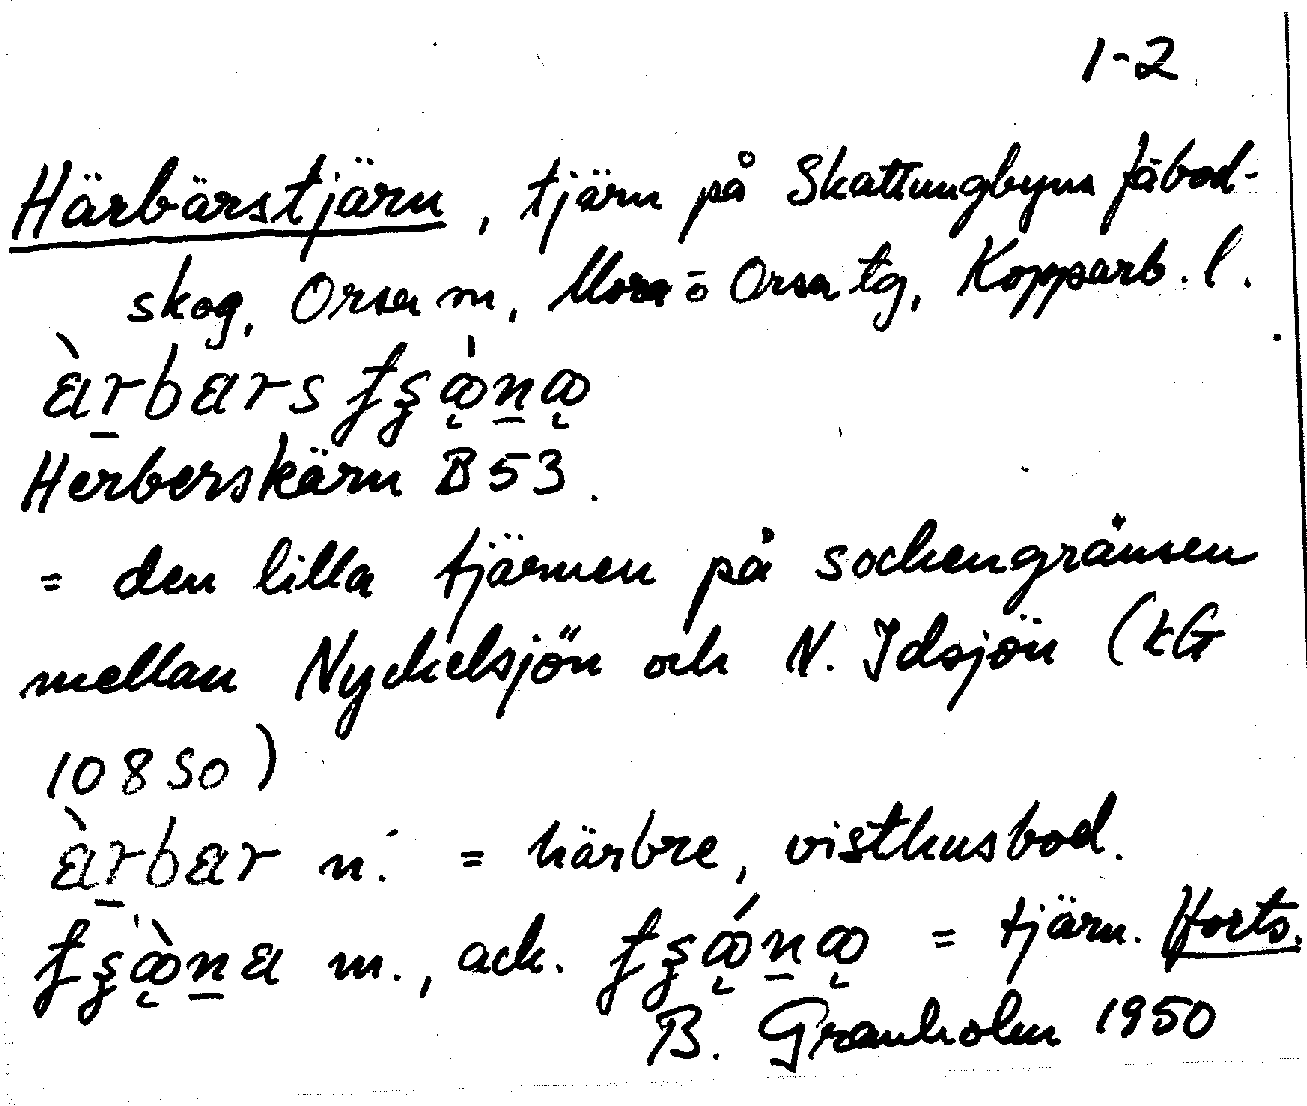 1-2
Härbärstjärn, tjärn på Skattungbyns fäbod-
skog, Orsa sn, Mora o Orsa tg, Kopparb. l.
Herberskärn B 53.
= den lilla tjärnen på sockengränsen
mellan Nyckelsjön och N. Idsjön (kG
10850)
n. = härbre, vistkusbod.
m., ack. = tjärn. Forts.
B. Granholm 1950